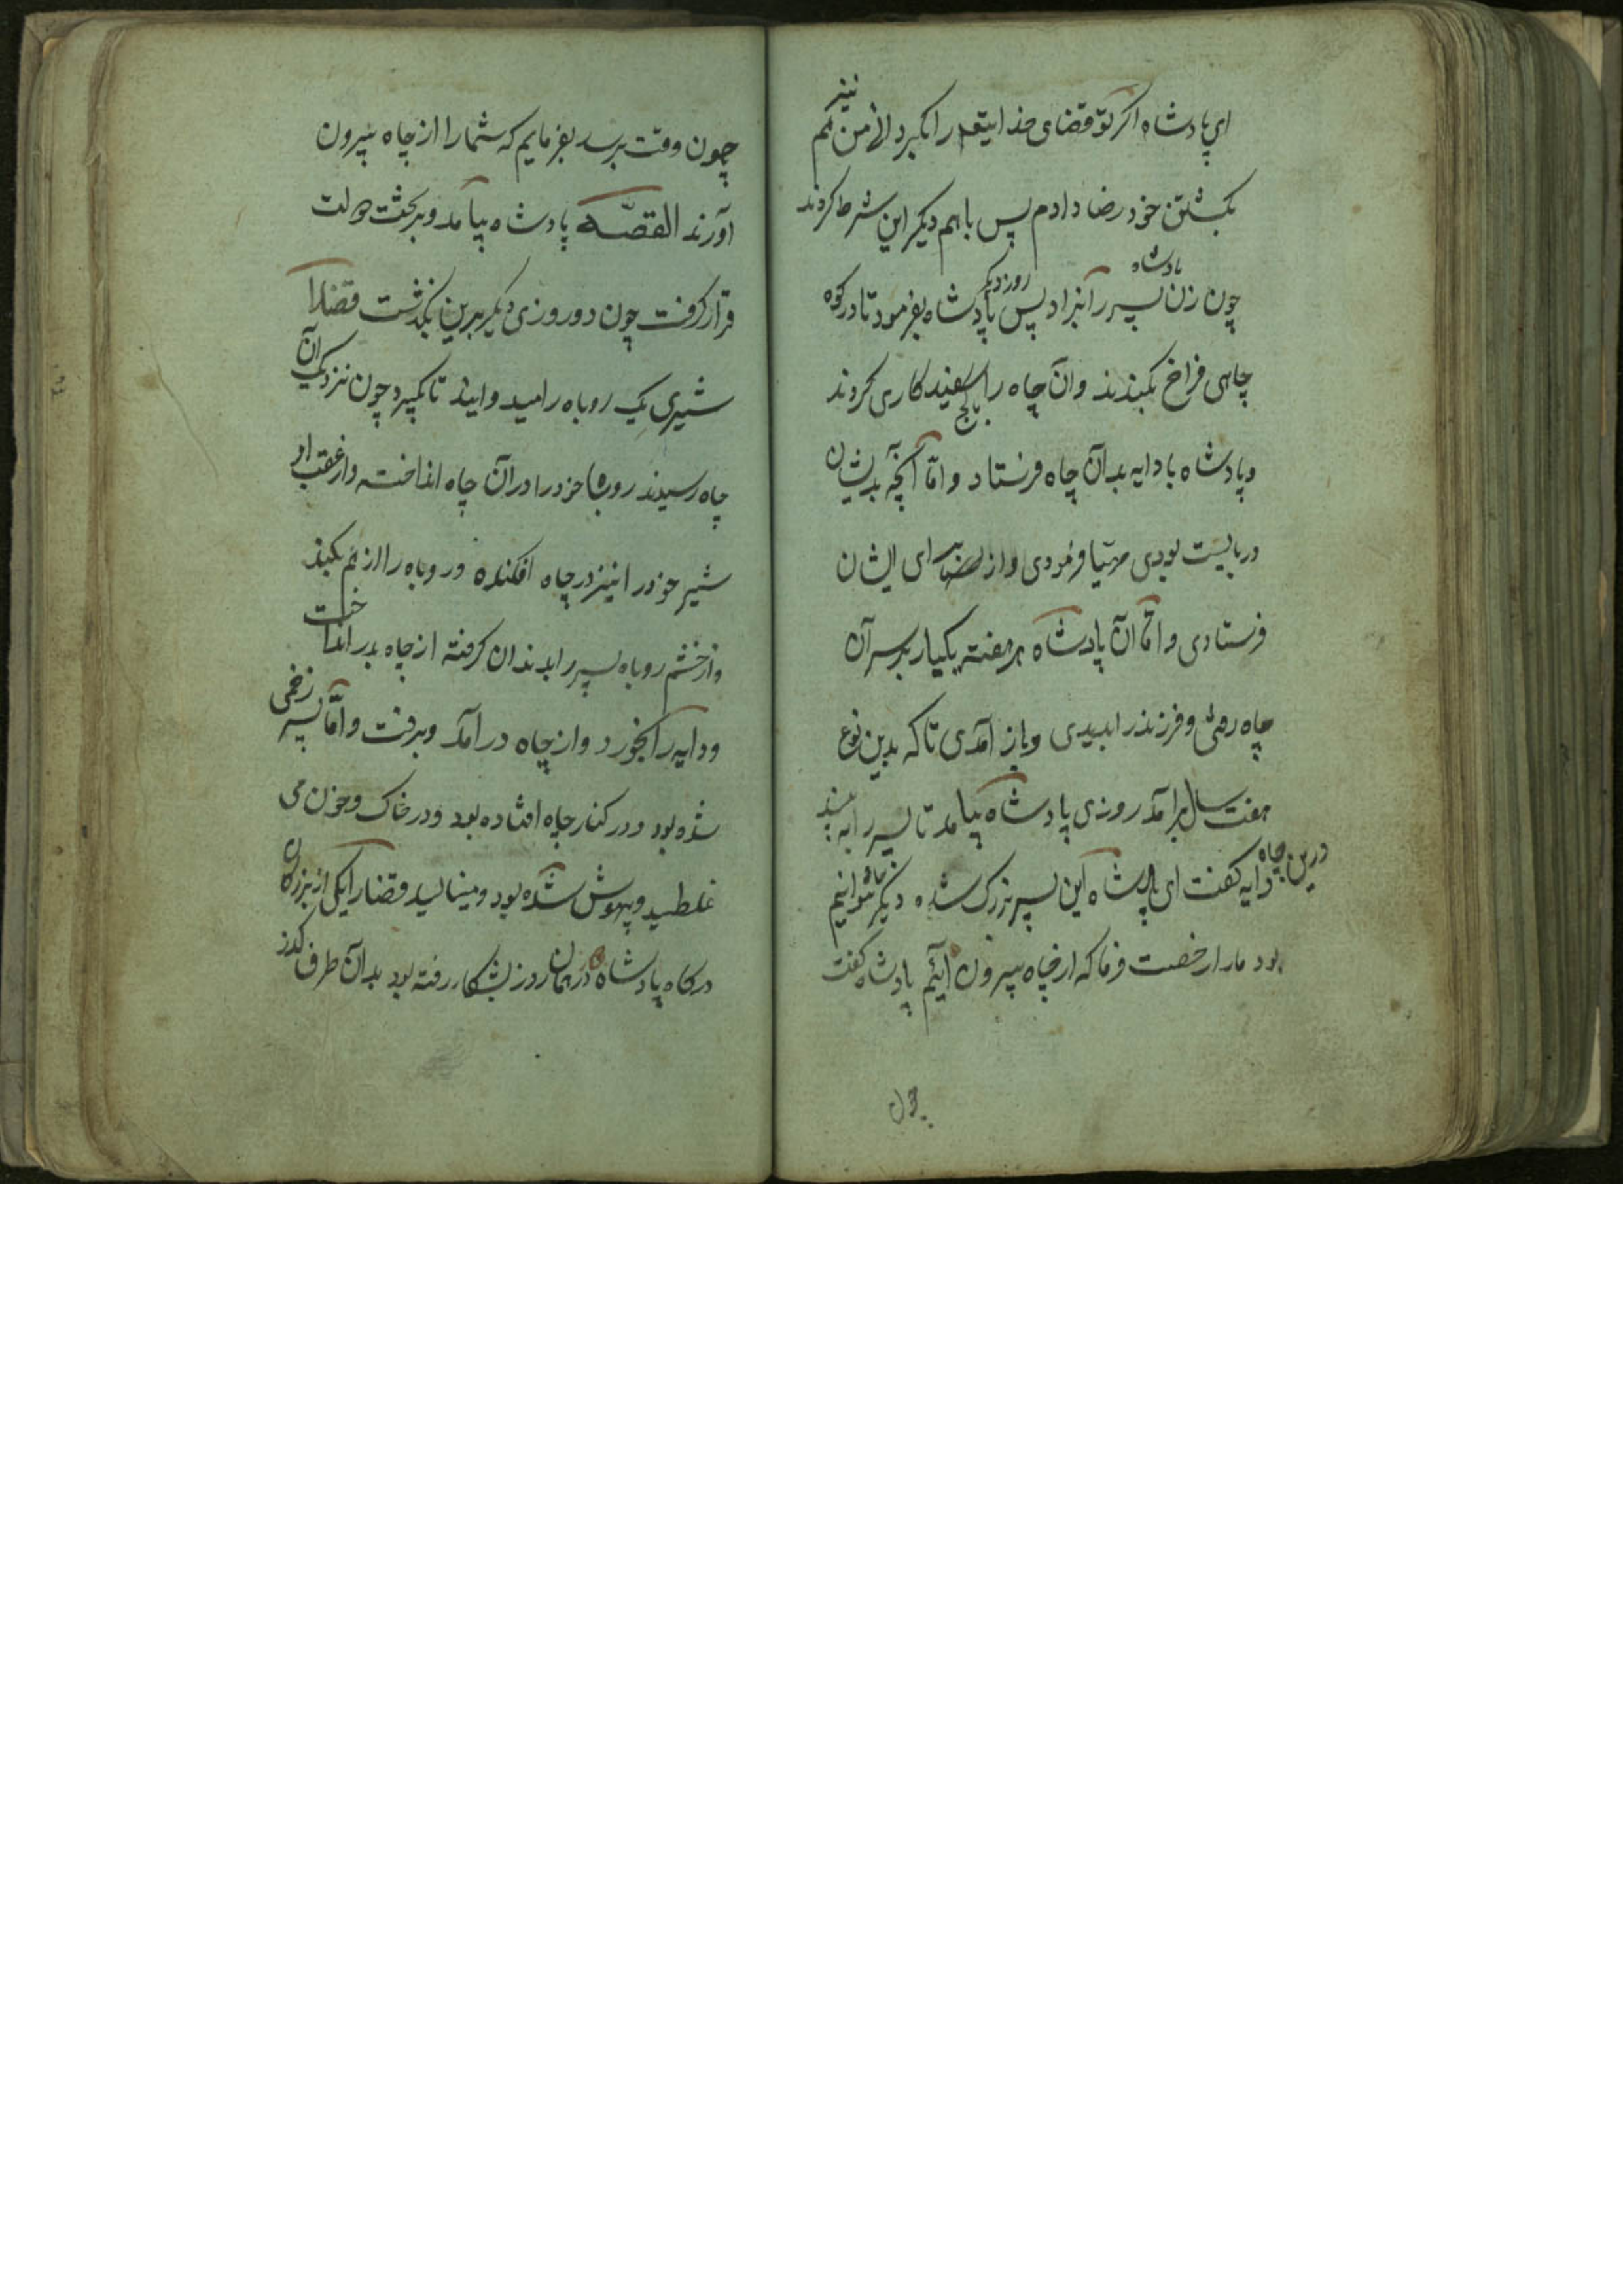 ای پادشاه اگر تو قضای خدایتعم را بگردانی من هم نیز
بکشتن خود رضا دادم پس باهم دیگر این شرط کردند
چون زن پادشاه پسر را بزاد پس روز دیگر پادشاه بفرمود تا در کوه
چاهی فراخ بکندند وآن چاه را بکج سفیدکاری کردند
و پادشاه با دایه بدآن چاه فرستاد و امّا آنچه بدیشان
دربایست بودی مهیّا فرمودی و از برای ایشان
فرستادی و امّا آن پادشاه هر هفته یکبار بر سر آن
چاه رفتی و فرزند را بدیدی و باز آمدی تا که بدین نوع
هفت سال برآمد روزی پادشاه بیامد تا پسر را به بیند
دایه گفت ای پادشاه این پسر بزرک شده دیگر نتوانیم درین چاه
بود مارا رخصت فرما که از چاه بیرون آئیم پادشاه گفت
چون
چون وقت برسد بفرمایم که شمارا از چاه بیرون
آورند القصّه پادشاه بیامد و بر تخت دولت
قرار گرفت چون دو روزی دیگر برین بگذشت قضارا
شیری یک روباه را میدوانید تا بگیرد چون نزدیک آن
چاه رسیدند روباه خودرا در آن چاه انداخت و از عقب او
شیر خودرا نیز در چاه افکنده و روباه را از هم بکند
و از خشم روباه پسر را بدندان گرفته از چاه بدر انداخت
و دایه را بخورد و از چاه درآمد و برفت و امّا پسر زخمی
شده بود و در کنار چاه افتاده بود و در خاک و خون می
غلطید و بیهوش شده بود و مینالید قضارا یکی از بزرکان
درکاه پادشاه در همان روز بشکار رفته بود بدآن طرف گذر